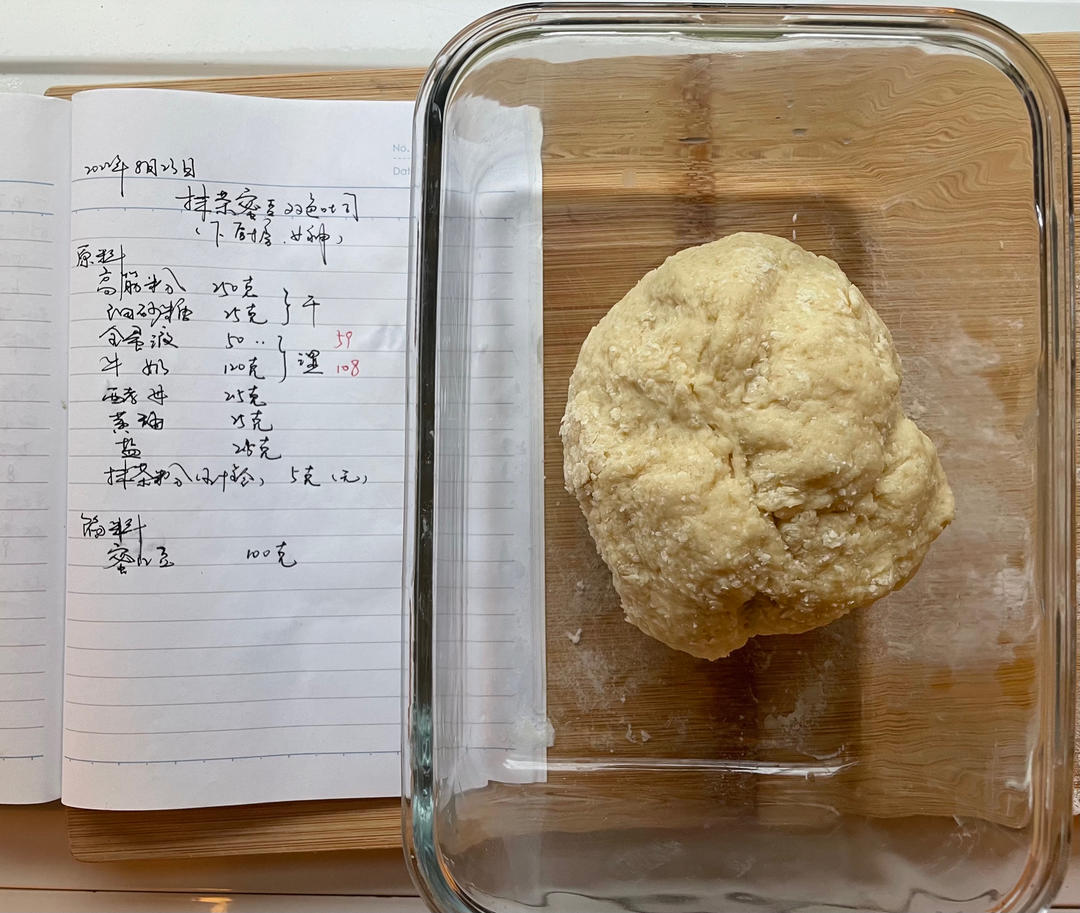 No.
Dat
2022年8月23日
抹茶蜜豆双色吐司
(下厨房.女神)
原料
高筋粉 250克 } 干
细砂糖 25克
全蛋液 50 ‥ } 湿 59
牛奶 120克 108
酵母 2.5克
黄油 25克
盐 2.5克
抹茶粉 5克(无)
馅料
蜜红豆 100克